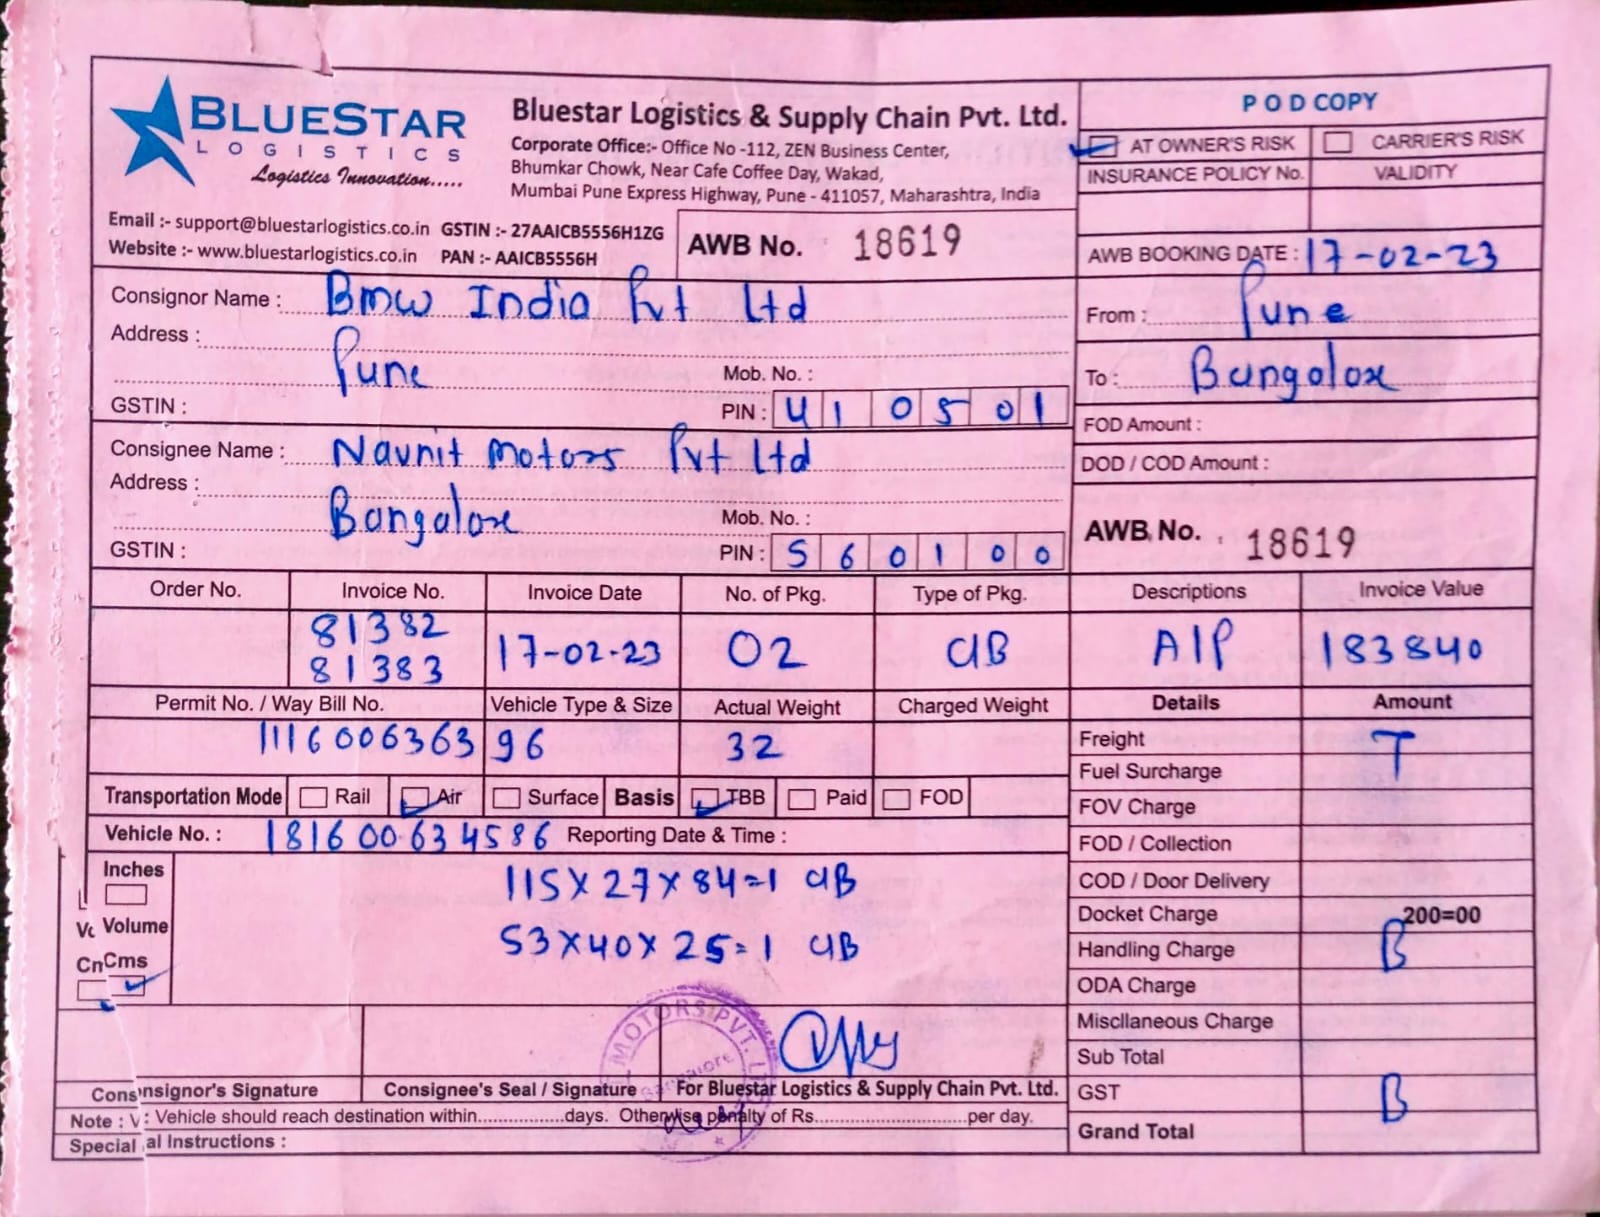 BLUESTAR
LOGISTICS
Logistics Innovation.....
Bluestar Logistics & Supply Chain Pvt. Ltd.
Corporate Office:- Office No -112, ZEN Business Center,
Bhumkar Chowk, Near Cafe Coffee Day, Wakad,
Mumbai Pune Express Highway, Pune - 411057, Maharashtra, India
Email :- support@bluestarlogistics.co.in GSTIN :- 27AAICB5556H1ZG
Website :- www.bluestarlogistics.co.in PAN :- AAICB5556H
AWB No. 18619
POD COPY
AT OWNER'S RISK CARRIER'S RISK
INSURANCE POLICY No. VALIDITY
AWB BOOKING DATE : 17-02-23
Consignor Name : Bmw India Pvt Ltd
Address :
Pune Mob. No. :
GSTIN : PIN : 410501
From : Pune
To : Bangalore
FOD Amount :
DOD / COD Amount :
Consignee Name : Navnit Motors Pvt Ltd
Address :
Bangalore Mob. No. :
GSTIN : PIN : 560100
AWB No. 18619
Order No. Invoice No. Invoice Date No. of Pkg. Type of Pkg. Descriptions Invoice Value
81382
81383 17-02-23 02 CIB AIP 183840
Permit No. / Way Bill No. Vehicle Type & Size Actual Weight Charged Weight Details Amount
1116006363 96 32
Transportation Mode Rail Air Surface Basis TBB Paid FOD
Vehicle No. : 181600634586 Reporting Date & Time :
Inches
Volume
Cms
115X27X84=1 CIB
53X40X25=1 CIB
Freight T
Fuel Surcharge
FOV Charge
FOD / Collection
COD / Door Delivery
Docket Charge 200=00
Handling Charge B
ODA Charge
Miscllaneous Charge
Sub Total
GST B
Grand Total
MOTORS PVT. L
Bangalore
Consignor's Signature Consignee's Seal / Signature For Bluestar Logistics & Supply Chain Pvt. Ltd.
Note : Vehicle should reach destination within...............days. Otherwise penalty of Rs...........................per day.
Special Instructions :